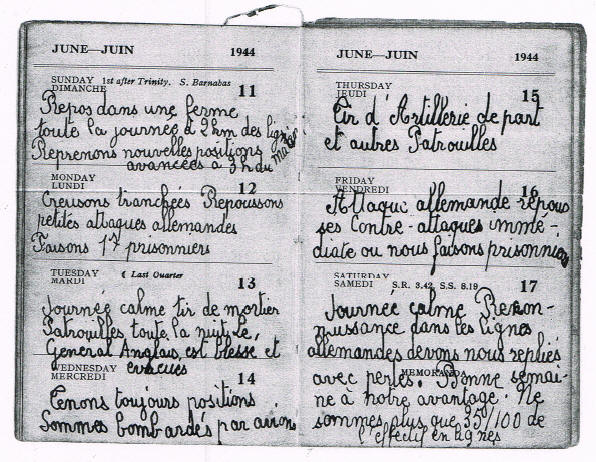 JUNE—JUIN 1944
SUNDAY 1st after Trinity. S. Barnabas
DIMANCHE 11
Repos dans une ferme
toute la journée à 2 km des lignes
Reprenons nouvelles positions
avancées à 3h du matin
MONDAY
LUNDI 12
Creusons tranchées Repoussons
petites attaques allemandes
Faisons 17 prisonniers
TUESDAY ☾ Last Quarter
MARDI 13
Journée calme tir de mortier
Patrouilles toute la nuit. Le
Général Anglais est blessé et
évacués
WEDNESDAY
MERCREDI 14
Tenons toujours positions
Sommes bombardés par avions
JUNE—JUIN 1944
THURSDAY
JEUDI 15
Tir d'Artillerie de part
et autres Patrouilles
FRIDAY
VENDREDI 16
Attaque allemande repous
ses Contre-attaques immé-
diate ou nous faisons prisonniers
SATURDAY
SAMEDI S.R. 3.42, S.S. 8.19 17
Journée calme Recon-
nussance dans les lignes
allemandes devons nous repliés
MEMORANDA
avec pertes. Bonne semai-
ne à notre avantage. Ne
sommes plus que 35/100 de
l'effectif en lignes